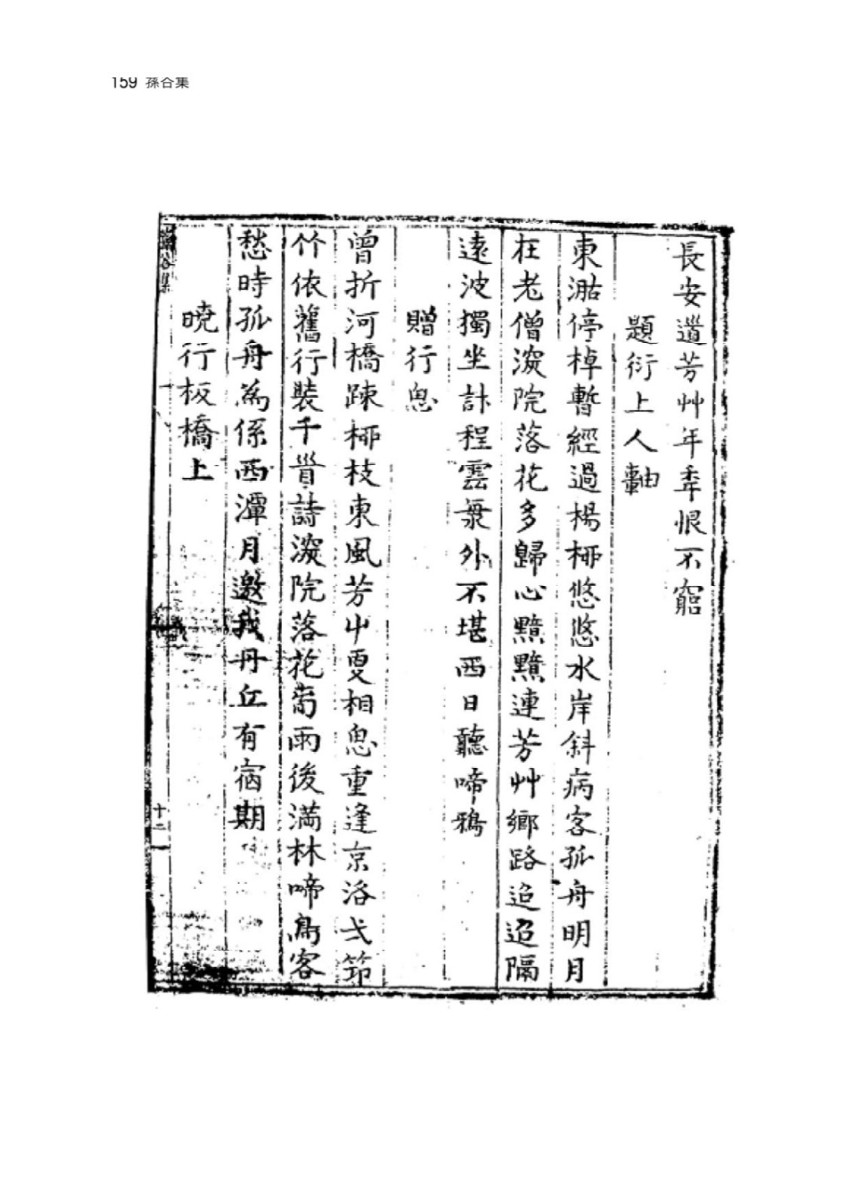 159 孫谷集
長安道芳艸年年恨不窮
題衍上人軸
東湖停棹暫經過楊柳悠悠水岸斜病客孤舟明月
在老僧深院落花多歸心黯黯連芳艸鄉路迢迢隔
遠波獨坐計程雲海外不堪西日聽啼鴉
贈行思
曾折河橋踈柳枝東風芳艸更相思重逢京洛弋笻
竹依舊行裝千首詩深院落花前雨後滿林啼鳥客
愁時孤舟為係西潭月邀我丹丘有宿期
曉行板橋上
谷集
十二